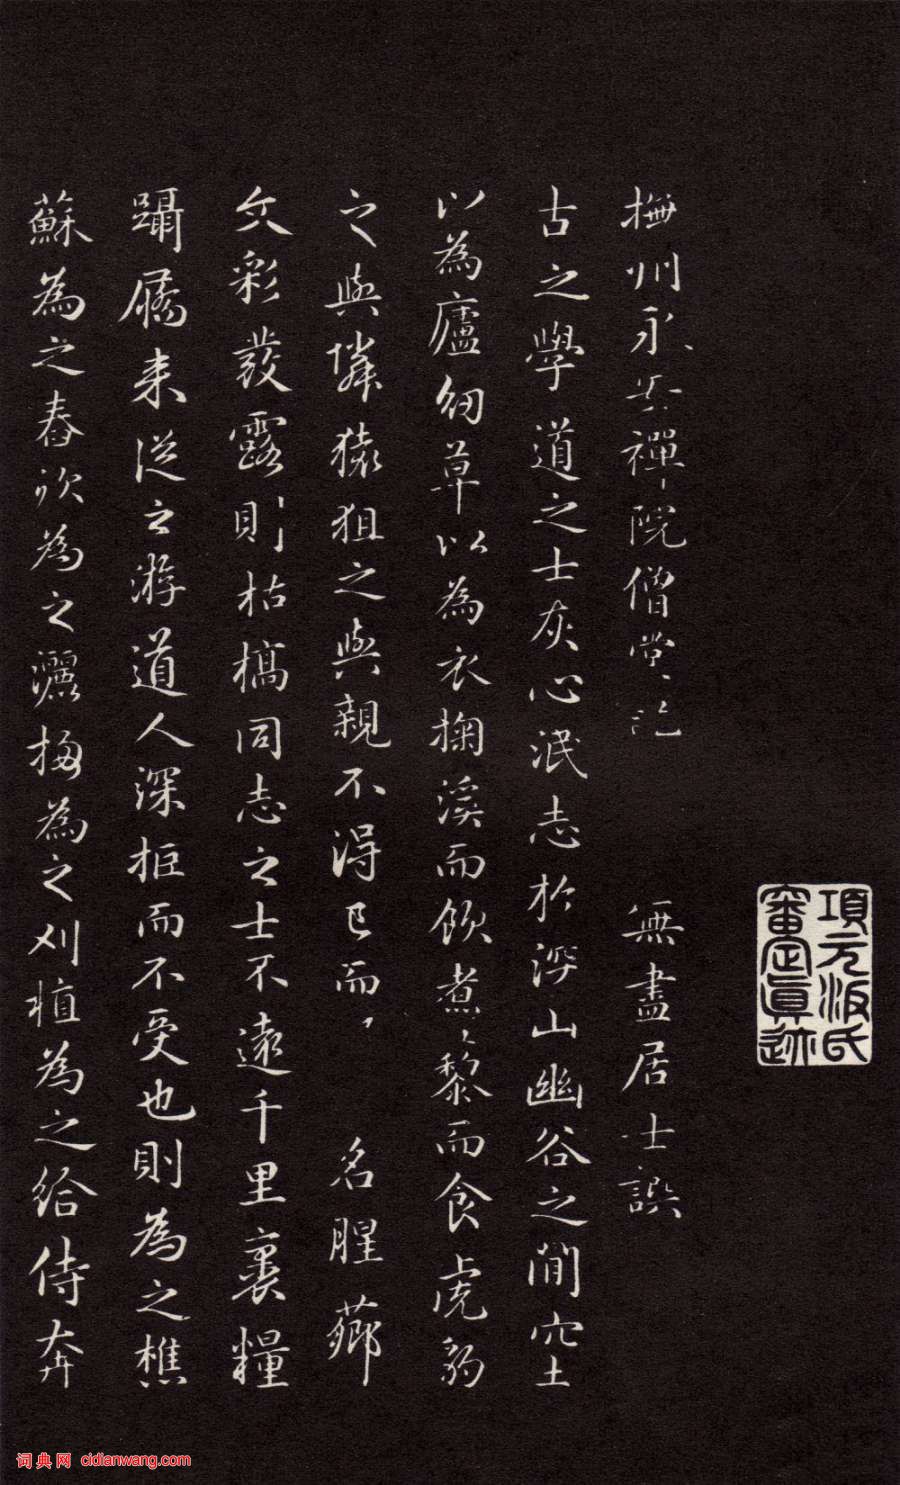 撫州永安禪院僧堂記　無盡居士譔
古之學道之士灰心泯志於深山幽谷之間穴土
以為廬紉草以為衣掬溪而飲煮藜而食虎豹
之與隣猿狙之與親不得已而　名腥薌
文彩發露則枯槁同志之士不遠千里裹糧
躡屩来從之游道人深拒而不受也則為之樵
蘇為之舂炊為之灑掃為之刈植為之給侍奔
項元汴氏
審定真迹
词典网 cidianwang.com